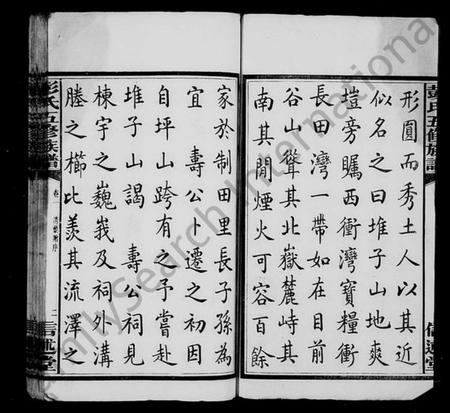 彭氏五修族譜
信述堂
形圓而秀土人以其近
似名之曰堆子山地爽
塏旁矚西衝灣寶糧衝
長田灣一帶如在目前
谷山聳其北嶽麓峙其
南其間煙火可容百餘
家於制田里長子孫為
宜壽公卜遷之初因
自坪山跨有之予嘗赴
堆子山謁壽公祠見
棟宇之巍峩及祠外溝
塍之櫛比羨其流澤之
彭氏五修族譜
卷一
二
信述堂
FamilySearch International